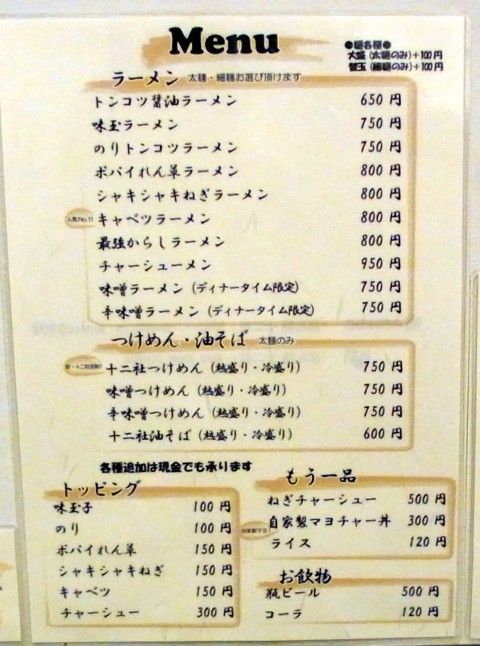 Menu
●麺各種●
大盛(太麺のみ)+100円
替玉(細麺のみ)+100円
ラーメン 太麺・細麺お選び頂けます
トンコツ醤油ラーメン 650円
味玉ラーメン 750円
のりトンコツラーメン 750円
ポパイれん草ラーメン 800円
シャキシャキねぎラーメン 800円
人気No.1! キャベツラーメン 800円
最強からしラーメン 800円
チャーシューメン 950円
味噌ラーメン(ディナータイム限定) 750円
辛味噌ラーメン(ディナータイム限定) 750円
つけめん・油そば 太麺のみ
十二社つけめん(熱盛り・冷盛り) 750円
味噌つけめん(熱盛り・冷盛り) 750円
辛味噌つけめん(熱盛り・冷盛り) 750円
十二社油そば(熱盛り・冷盛り) 600円
各種追加は現金でも承ります
トッピング
味玉子 100円
のり 100円
ポパイれん草 150円
シャキシャキねぎ 150円
キャベツ 150円
チャーシュー 300円
もう一品
ねぎチャーシュー 500円
自家製マヨ 自家製マヨチャー丼 300円
ライス 120円
お飲物
瓶ビール 500円
コーラ 120円